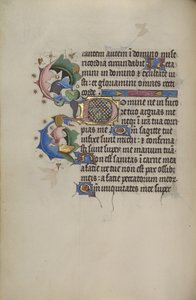 rantem autem in domino mise
ricordia circumdabit Leta
mini in domino et exultate iu
sti: et gloriamini omnes recti
corde.
Domine ne in furo
re tuo arguas me
neq; in ira tua corri
pias me Qm sagitte tue
infixe sunt michi: et confirma
sti super me manum tuā
Non est sanitas in carne mea
a facie ire tue non est pax ossib;
meis: a facie peccatorum meor
Qm iniquitates mee super